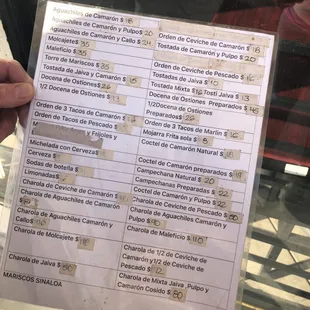 Aguachiles de Camarón $ 18
Aguachiles de Camarón y Pulpo $ 20
Aguachiles de Camarón y Callo $ 24
Molcajete $ 35
Maleficio $ 35
Torre de Mariscos $ 35
Tostada de Jaiva y Camarón $ 16
Docena de Ostiones $ 26
1/2 Docena de Ostiones $ 13
Orden de 3 Tacos de Camarón $
Orden de Tacos de Pescado $
y Frijoles y
Michelada con Cerveza $
Cerveza $
Sodas de botella $
Limonadas $
Charola de Ceviche de Camarón $
Charola de Aguachiles de Camarón
$ 80
Charola de Aguachiles Camarón y
Callo $
Charola de Molcajete $ 110
Charola de Jaiva $ 80
MARISCOS SINALOA
Orden de Ceviche de Camarón $ 18
Tostada de Camarón y Pulpo $ 20
Orden de Ceviche de Pescado $ 16
Tostadas de Jaiva $ 10
Tostada Mixta $ 16 Tosti Jaiva $ 13
Docena de Ostiones Preparados $
1/2Docena de Ostiones
Preparados $
Orden de 3 Tacos de Marlin $ 16
Mojarra Frita sola $
Coctel de Camarón Natural $ 18
Coctel de Camarón preparado $
Campechana Natural $ 20
Campechanas Preparadas $ 22
Coctel de Camarón y Pulpo $ 22
Charola de Ceviche de Pescado $
Charola de Aguachiles Camarón y
Pulpo $
Charola de Maleficio $ 110
Charola de 1/2 de Ceviche de
Camarón y1/2 de Ceviche de
Pescado $
Charola de Mixta Jaiva ,Pulpo y
Camarón Cosido $ 80